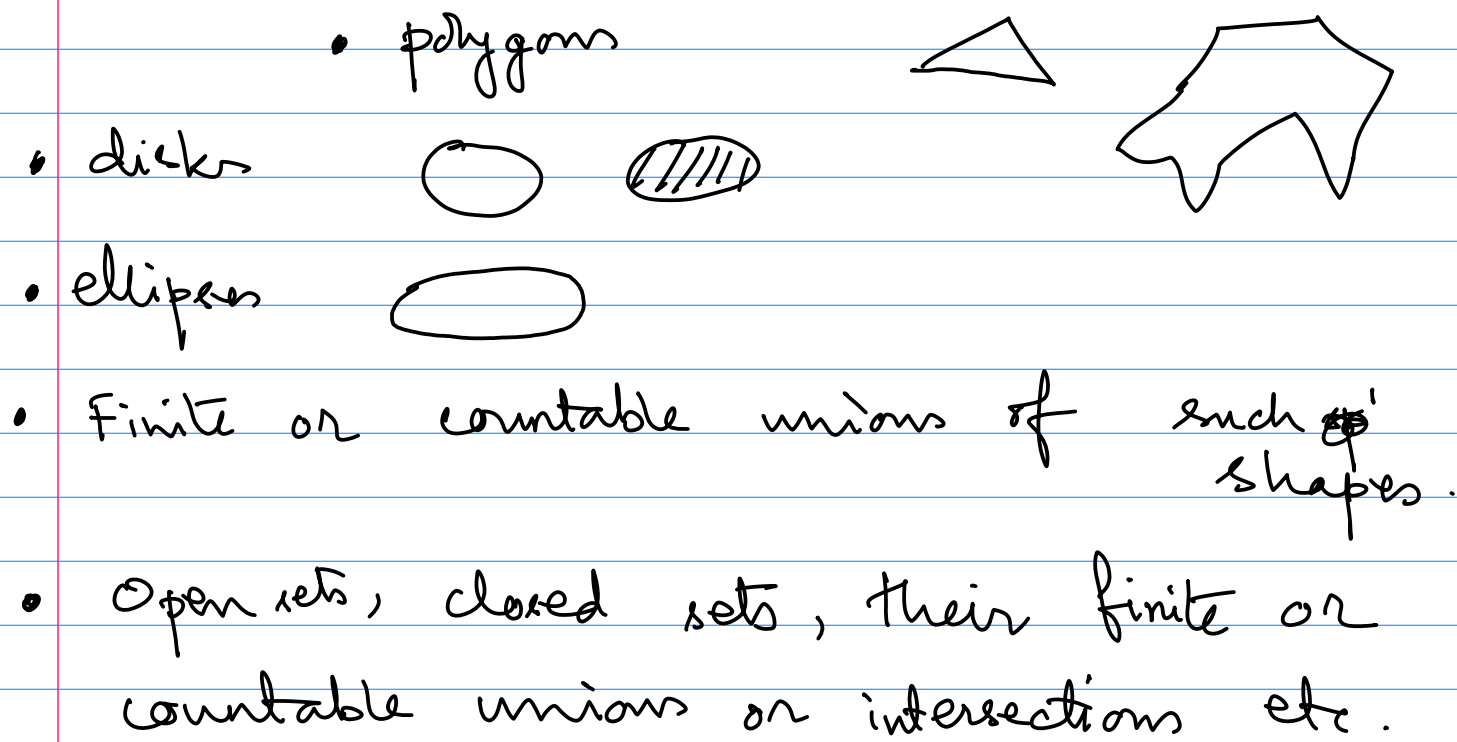 • polygons
• disks
• ellipses
• Finite or countable unions of such
shapes.
• Open sets, closed sets, their finite or
countable unions or intersections etc.